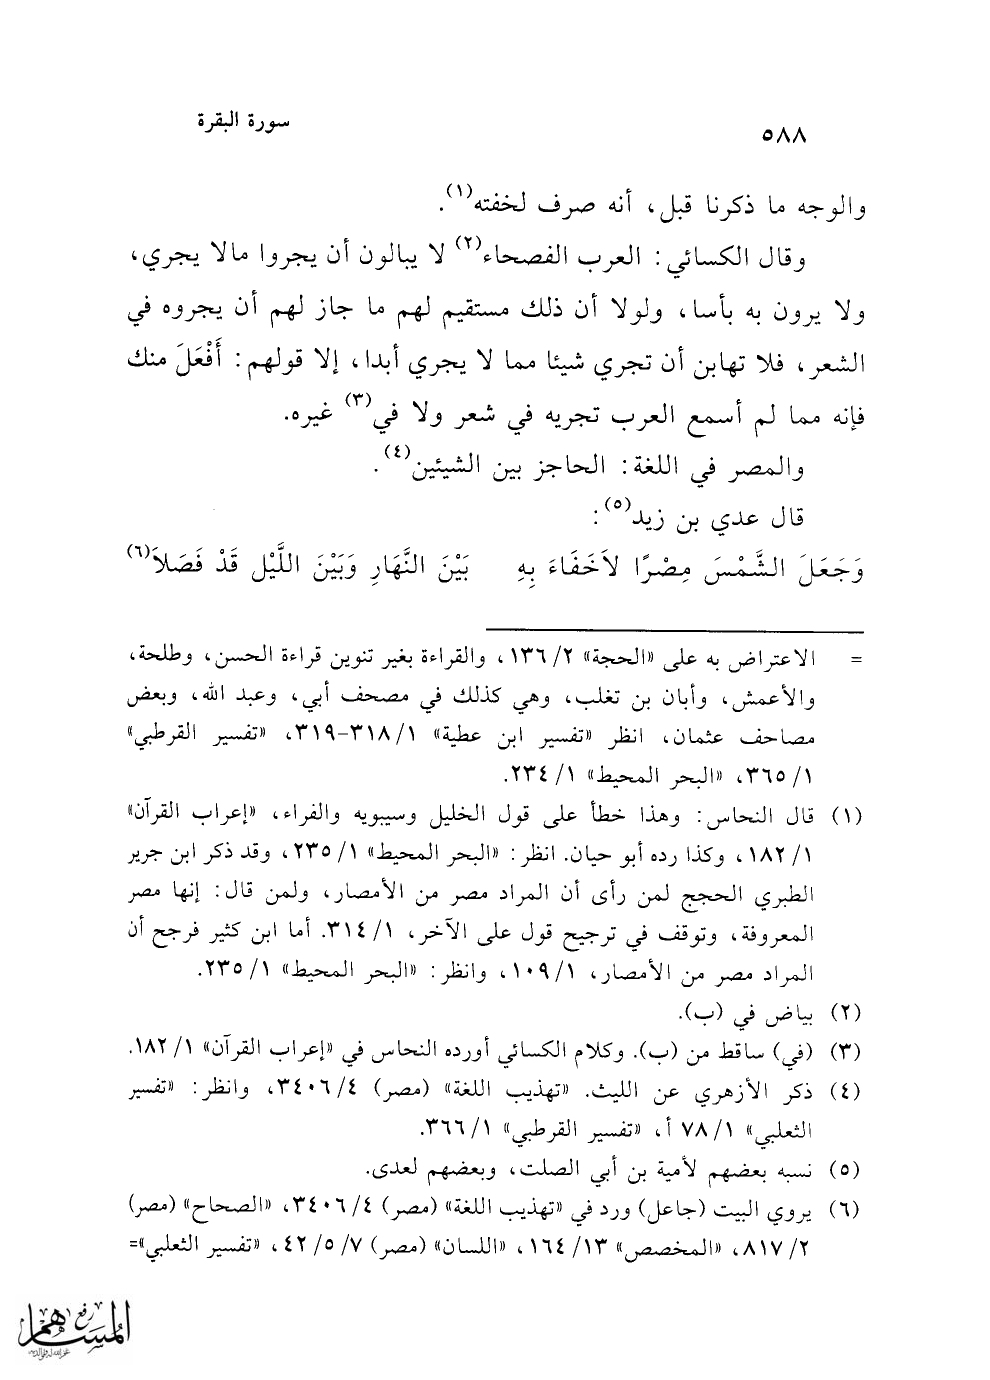 ٥٨٨ سورة البقرة
والوجه ما ذكرنا قبل، أنه صرف لخفته(١).
وقال الكسائي: العرب الفصحاء(٢) لا يبالون أن يجروا مالا يجري،
ولا يرون به بأسا، ولولا أن ذلك مستقيم لهم ما جاز لهم أن يجروه في
الشعر، فلا تهابن أن تجري شيئا مما لا يجري أبدا، إلا قولهم: أَفْعَلَ منك
فإنه مما لم أسمع العرب تجريه في شعر ولا في(٣) غيره.
والمصر في اللغة: الحاجز بين الشيئين(٤).
قال عدي بن زيد(٥):
وَجَعَلَ الشَّمْسَ مِصْرًا لاَخَفَاءَ بِهِ بَيْنَ النَّهَارِ وَبَيْنَ اللَّيْل قَدْ فَصَلاَ(٦)
= الاعتراض به على «الحجة» ٢/ ١٣٦، والقراءة بغير تنوين قراءة الحسن، وطلحة،
والأعمش، وأبان بن تغلب، وهي كذلك في مصحف أبي، وعبد الله، وبعض
مصاحف عثمان، انظر «تفسير ابن عطية» ١/ ٣١٨-٣١٩، «تفسير القرطبي»
١/ ٣٦٥، «البحر المحيط» ١/ ٢٣٤.
(١) قال النحاس: وهذا خطأ على قول الخليل وسيبويه والفراء، «إعراب القرآن»
١/ ١٨٢، وكذا رده أبو حيان. انظر: «البحر المحيط» ١/ ٢٣٥، وقد ذكر ابن جرير
الطبري الحجج لمن رأى أن المراد مصر من الأمصار، ولمن قال: إنها مصر
المعروفة، وتوقف في ترجيح قول على الآخر، ١/ ٣١٤. أما ابن كثير فرجح أن
المراد مصر من الأمصار، ١/ ١٠٩، وانظر: «البحر المحيط» ١/ ٢٣٥.
(٢) بياض في (ب).
(٣) (في) ساقط من (ب). وكلام الكسائي أورده النحاس في «إعراب القرآن» ١/ ١٨٢.
(٤) ذكر الأزهري عن الليث. «تهذيب اللغة» (مصر) ٤/ ٣٤٠٦، وانظر: «تفسير
الثعلبي» ١/ ٧٨ أ، «تفسير القرطبي» ١/ ٣٦٦.
(٥) نسبه بعضهم لأمية بن أبي الصلت، وبعضهم لعدى.
(٦) يروي البيت (جاعل) ورد في «تهذيب اللغة» (مصر) ٤/ ٣٤٠٦، «الصحاح» (مصر)
٢/ ٨١٧، «المخصص» ١٣/ ١٦٤، «اللسان» (مصر) ٧/ ٥/ ٤٢، «تفسير الثعلبي»=
رفع
المساهم